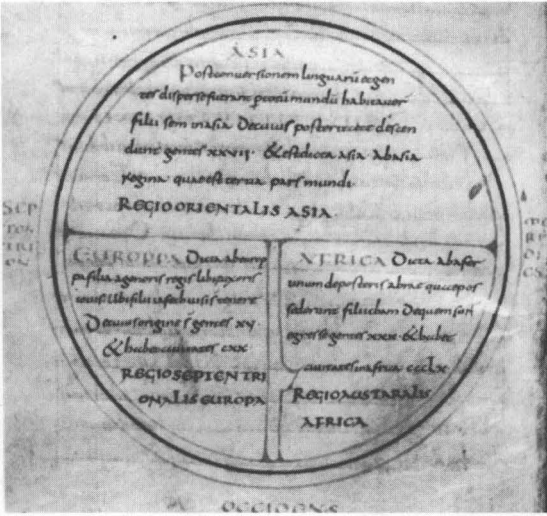 ASIA
Post conversionem linguarū et gen
tes disperse fuerant p totū mundū habitaver̄
filii sem in asia De cuius posteritate descen
dunt gentes xxvii · & est dicta asia ab asia
regina · quae est tertia pars mundi
REGIO ORIENTALIS ASIA.
SEP
TEN
TRI
ON
EUROPPA Dicta ab europ
pa filia agenoris regis libiȩ
iovis ubi filii iafeth visi s tenere
De cuius origine s̄ gentes xv ·
& habet civitates cxx
REGIO SEPTENTRI
ONALIS EUROPA
AFRICA Dicta ab afer
unum de posteris abrae qui
filii cham De quem sun
egresse gentes xxx · & habet
civitates in africa ccclx
REGIO AUSTARALIS
AFRICA
ME
R
DI
ES
OCCIDENS